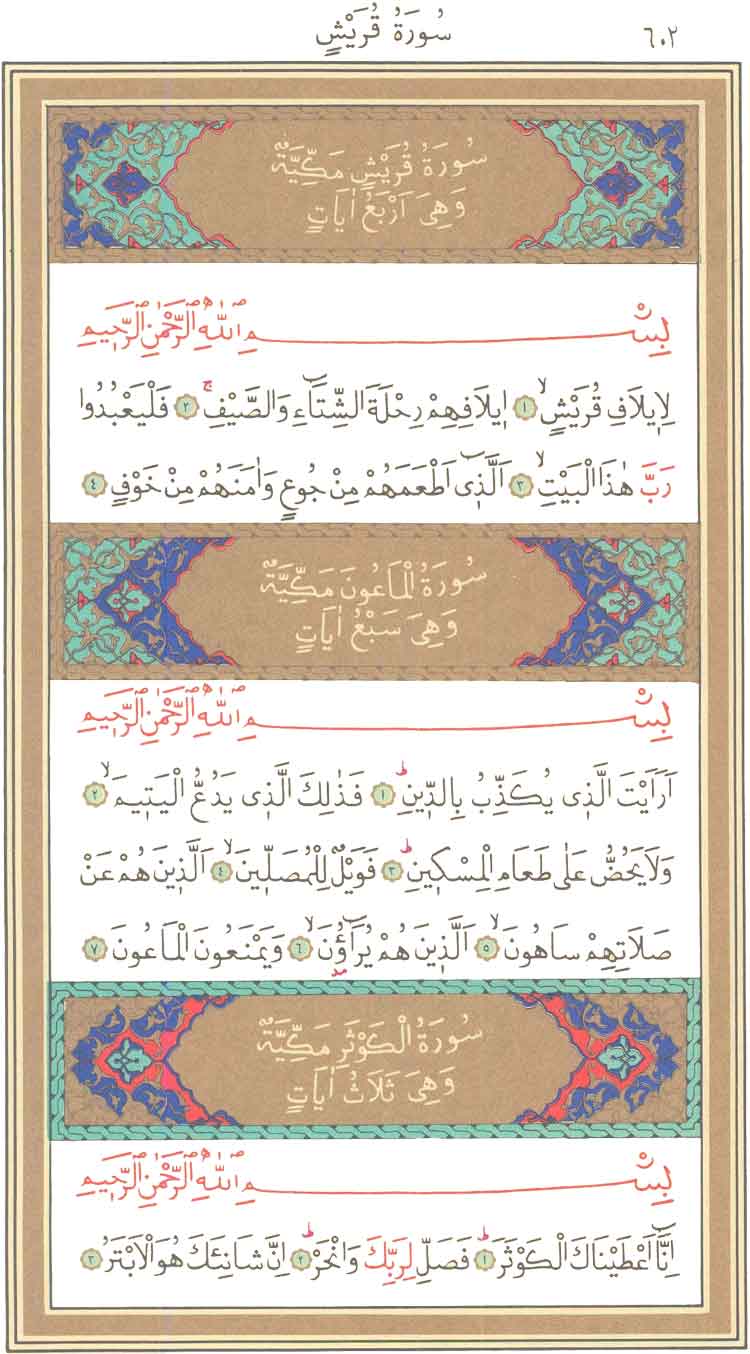 سُورَةُ قُرَيْشٍ ٦٠٢
سُورَةُ قُرَيْشٍ مَكِّيَّةٌ
وَهِىَ اَرْبَعُ اٰيَاتٍ
بِسْمِ اللّٰهِ الرَّحْمٰنِ الرَّح۪يمِ
لِا۪يلَافِ قُرَيْشٍۙ ﴿١﴾ ا۪يلَافِهِمْ رِحْلَةَ الشِّتَٓاءِ وَالصَّيْفِۚ ﴿٢﴾ فَلْيَعْبُدُوا
رَبَّ هٰذَا الْبَيْتِۙ ﴿٣﴾ اَلَّذ۪ٓى اَطْعَمَهُمْ مِنْ جُوعٍ وَاٰمَنَهُمْ مِنْ خَوْفٍ ﴿٤﴾
سُورَةُ الْمَاعُونَ مَكِّيَّةٌ
وَهِىَ سَبْعُ اٰيَاتٍ
بِسْمِ اللّٰهِ الرَّحْمٰنِ الرَّح۪يمِ
اَرَاَيْتَ الَّذ۪ى يُكَذِّبُ بِالدّ۪ينِۜ ﴿١﴾ فَذٰلِكَ الَّذ۪ى يَدُعُّ الْيَت۪يمَۙ ﴿٢﴾
وَلَا يَحُضُّ عَلٰى طَعَامِ الْمِسْك۪ينِۜ ﴿٣﴾ فَوَيْلٌ لِلْمُصَلّ۪ينَۙ ﴿٤﴾ اَلَّذ۪ينَ هُمْ عَنْ
صَلَاتِهِمْ سَاهُونَۙ ﴿٥﴾ اَلَّذ۪ينَ هُمْ يُرَٓاؤُ۫نَۙ ﴿٦﴾ وَيَمْنَعُونَ الْمَاعُونَ ﴿٧﴾
سُورَةُ الْكَوْثَرِ مَكِّيَّةٌ
وَهِىَ ثَلَاثُ اٰيَاتٍ
بِسْمِ اللّٰهِ الرَّحْمٰنِ الرَّح۪يمِ
اِنَّٓا اَعْطَيْنَاكَ الْكَوْثَرَۜ ﴿١﴾ فَصَلِّ لِرَبِّكَ وَانْحَرْۜ ﴿٢﴾ اِنَّ شَانِئَكَ هُوَ الْاَبْتَرُ ﴿٣﴾